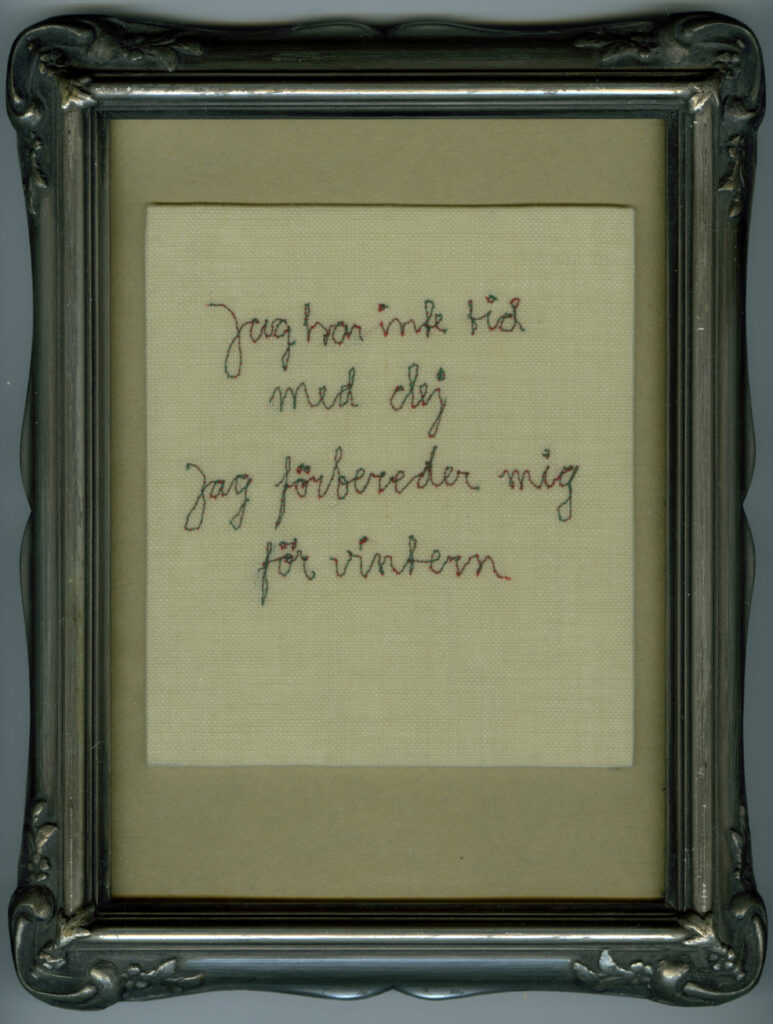 Jag har inte tid
med dej
Jag förbereder mig
för vintern